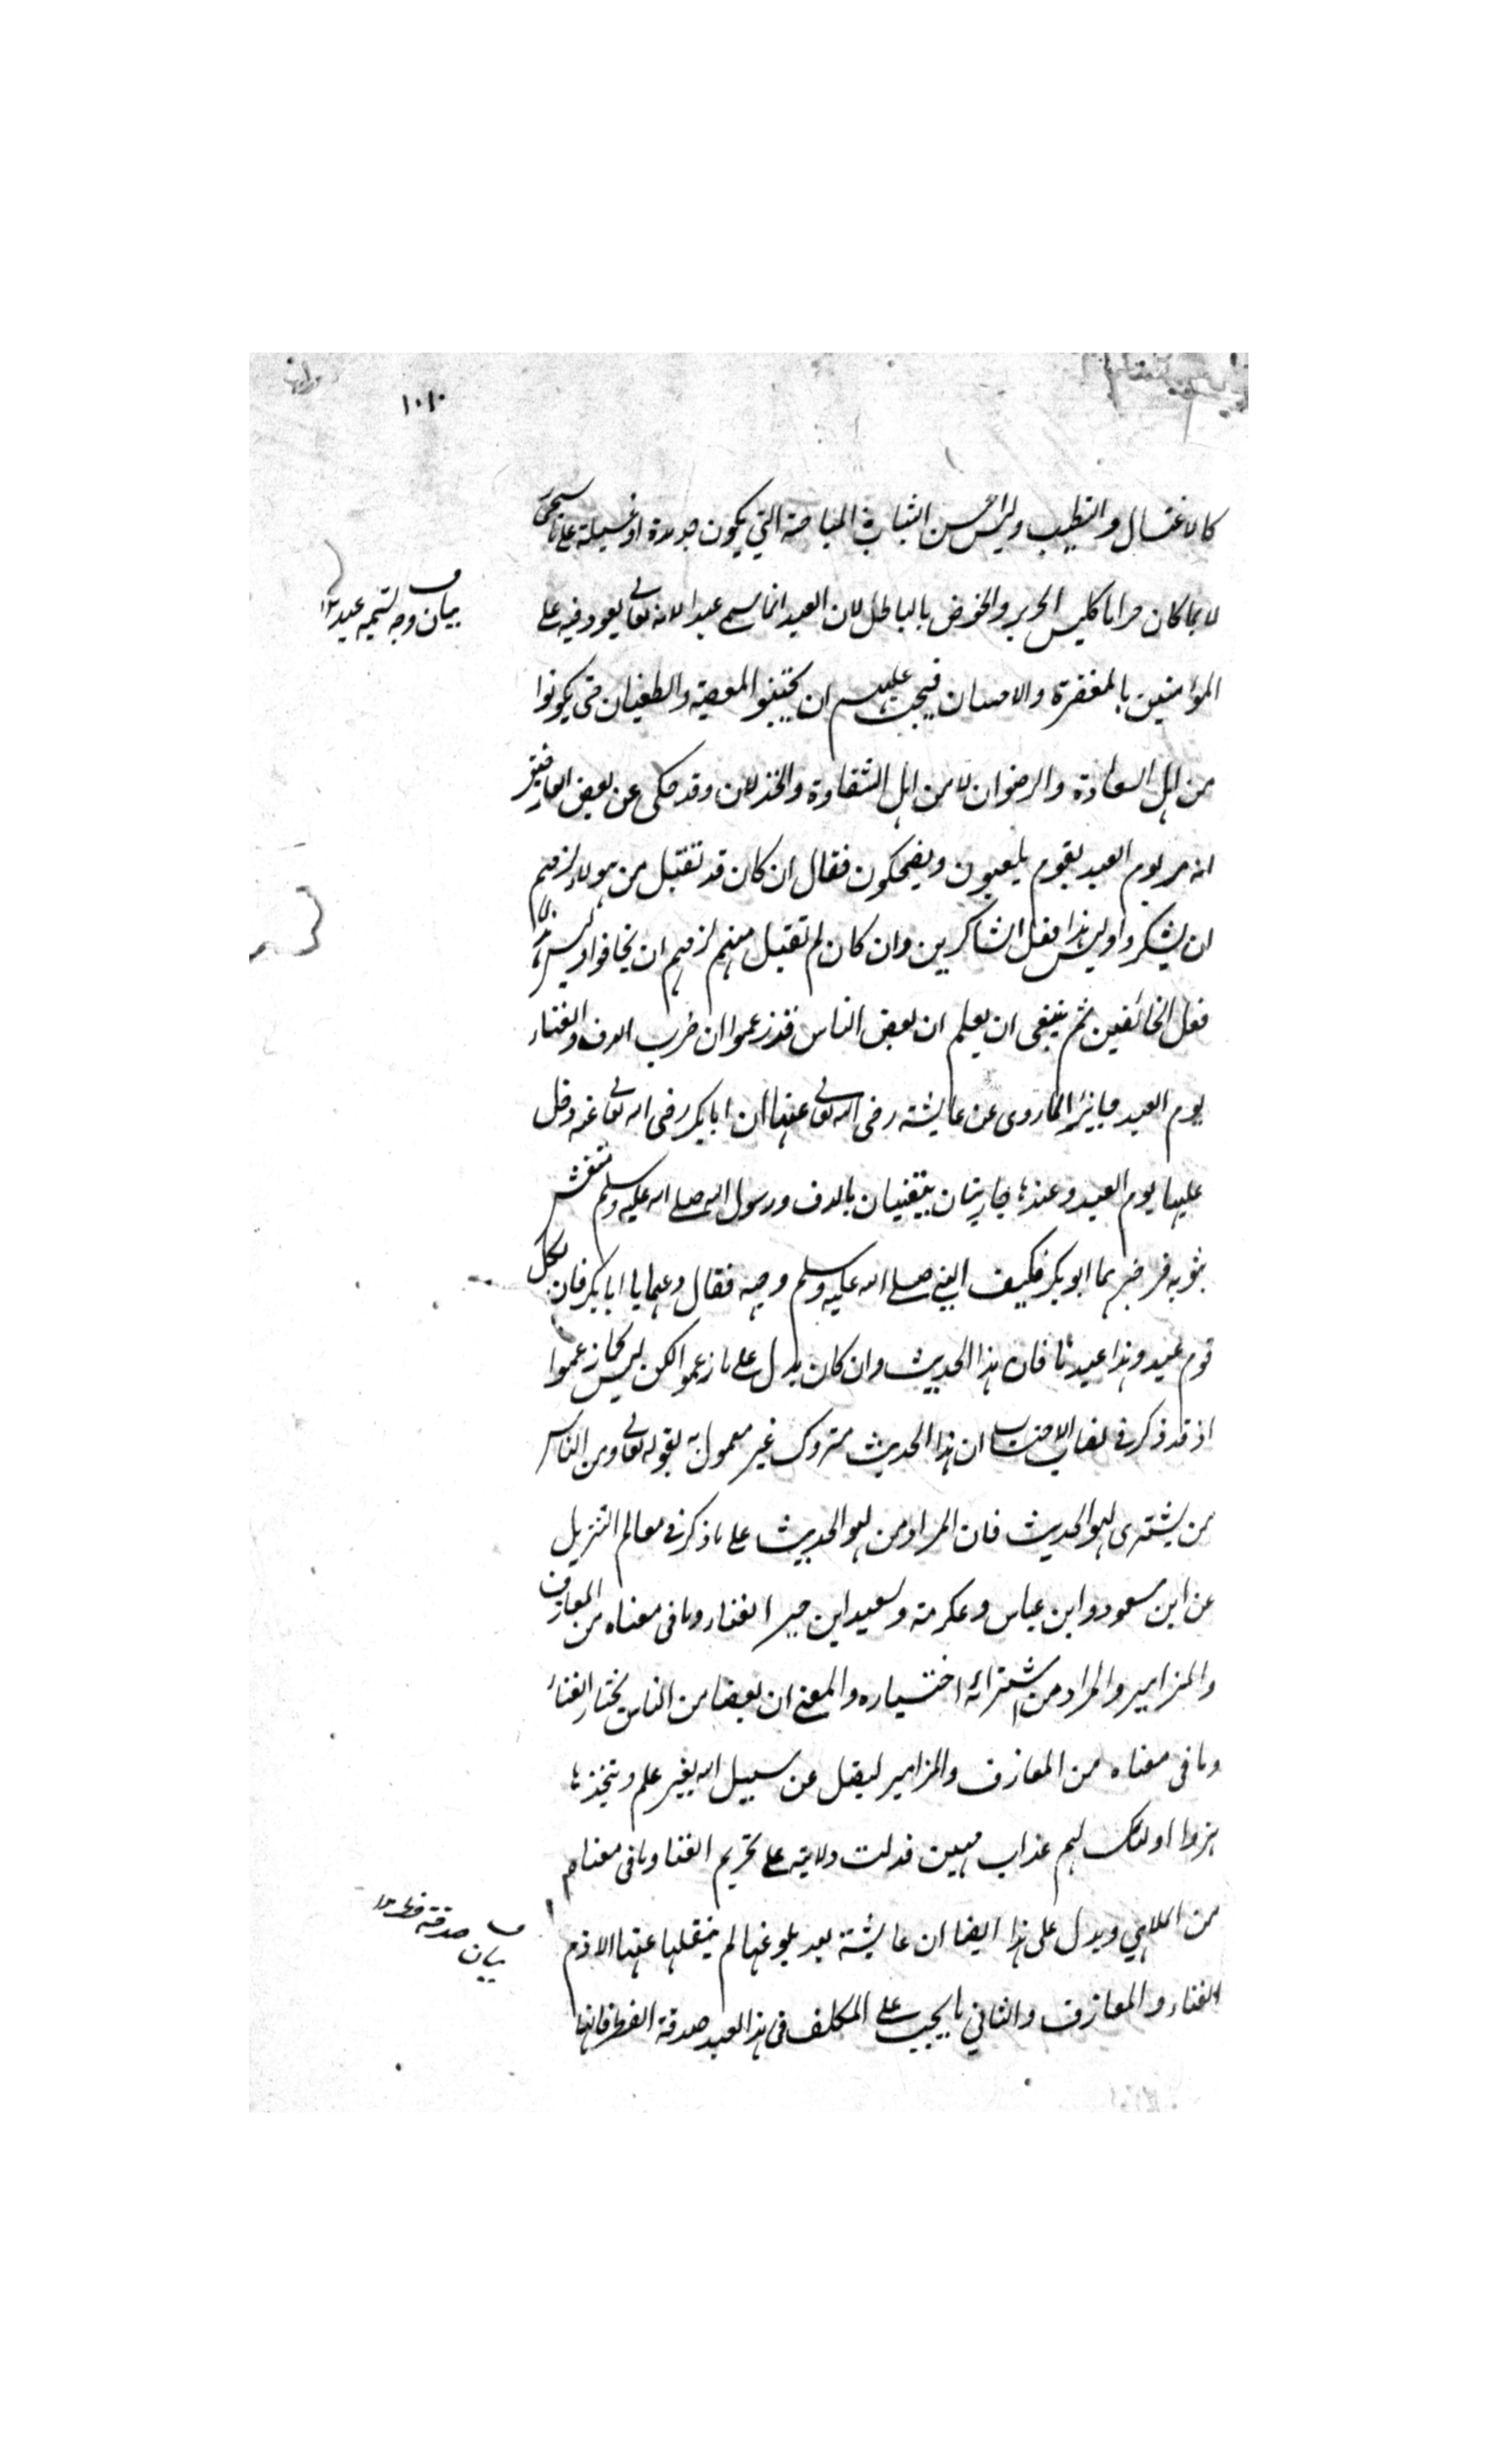 ١٠١٠
كالاغتسال والتطيب ولبس احسن الثياب المباحة التي يكون جديدة او غسيلة على ما سيجئ
لا بما كان حراما كلبس الحرير والخوض بالباطل لان العيد انما سمى عيدا لانه تعالى يعود فيه على
بيان وجه تسميه عيد ١٢
المؤمنين بالمغفرة والاحسان فيجب عليهم ان يجتنبوا المعصية والطغيان حتى يكونوا
من اهل السعادة والرضوان لا من اهل الشقاوة والخذلان وقد حكى عن بعض العارفين
انه مر يوم العيد بقوم يلعبون ويضحكون فقال ان كان قد تقبل من هولاء لزمهم
ان يشكروا وليس هذا فعل الشاكرين وان كان لم تقبل منهم لزمهم ان يخافوا وليس هذا
فعل الخائفين ثم ينبغى ان يعلم ان بعض الناس قد زعموا ان ضرب الدف والغناء
يوم العيد جائز لما روى عن عايشة رضى الله تعالى عنها ان ابا بكر رضى الله تعالى عنه دخل
عليها يوم العيد وعندها جاريتان يتغنيان بالدف ورسول الله صلى الله عليه وسلم متغش
بثوبه فزجرهما ابو بكر فكشف النبي صلى الله عليه وسلم وجهه فقال دعهما يا ابا بكر فان لكل
قوم عيد وهذا عيدنا فان هذا الحديث وان كان يدل على ما زعموا لكن ليس كما زعموا
اذ قد ذكر في نصاب الاحتساب ان هذا الحديث متروك غير معمول به لقوله تعالى ومن الناس
من يشترى لهو الحديث فان المراد من لهو الحديث على ما ذكر في معالم التنزيل
عن ابن مسعود وابن عباس وعكرمة وسعيد ابن جبير الغناء وما فى معناه من المعازف
والمزامير والمراد من اشترائه اختياره والمعنى ان بعضا من الناس يختار الغناء
وما فى معناه من المعازف والمزامير ليضل عن سبيل الله بغير علم ويتخذها
هزوا اولئك لهم عذاب مهين فدلت دلايته على تحريم الغنا وما فى معناه
من الملاهي ويدل على هذا ايضا ان عايشة بعد بلوغها لم ينقل عنها الا ذم
بيان صدقة فطر ١٢
الغناء والمعازف والثاني ما يجب على المكلف فى هذا العيد صدقة الفطر فانها